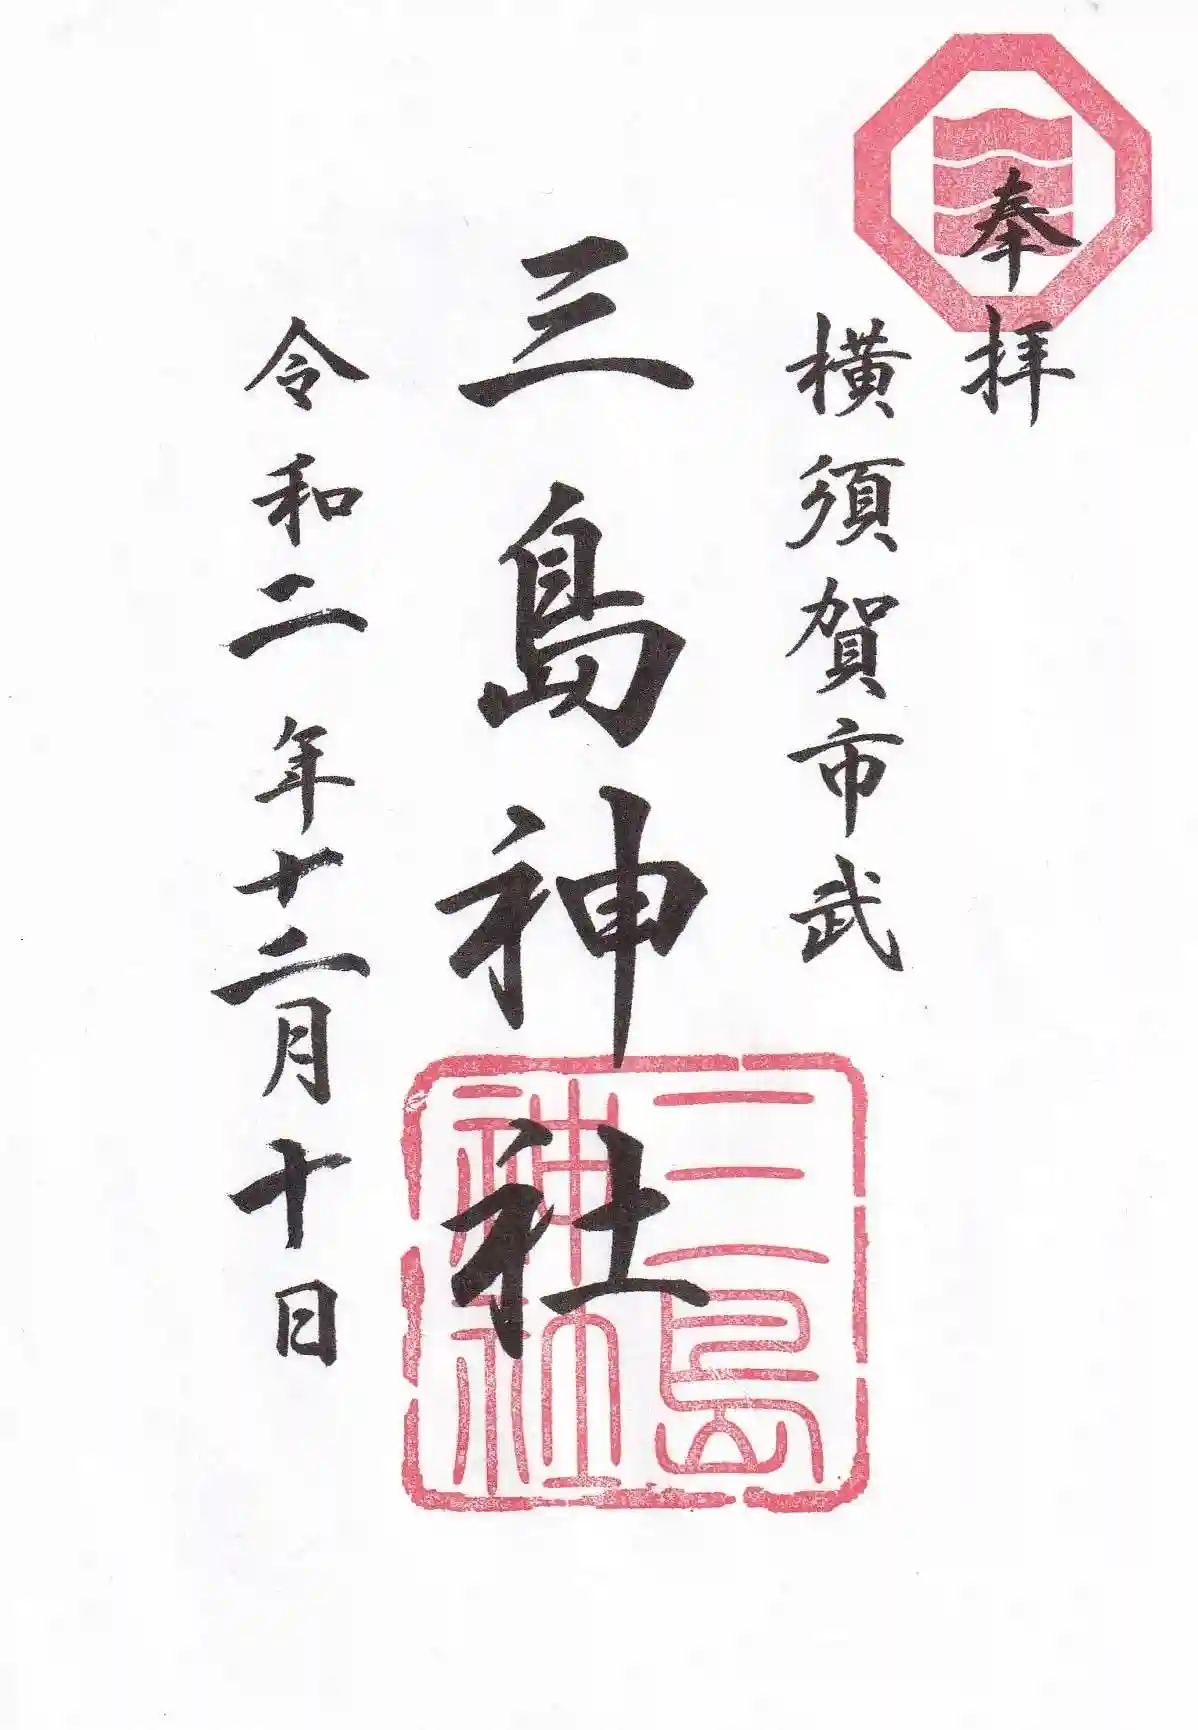 奉拝
横須賀市武
三島神社
令和二年十二月十日
三島
神社